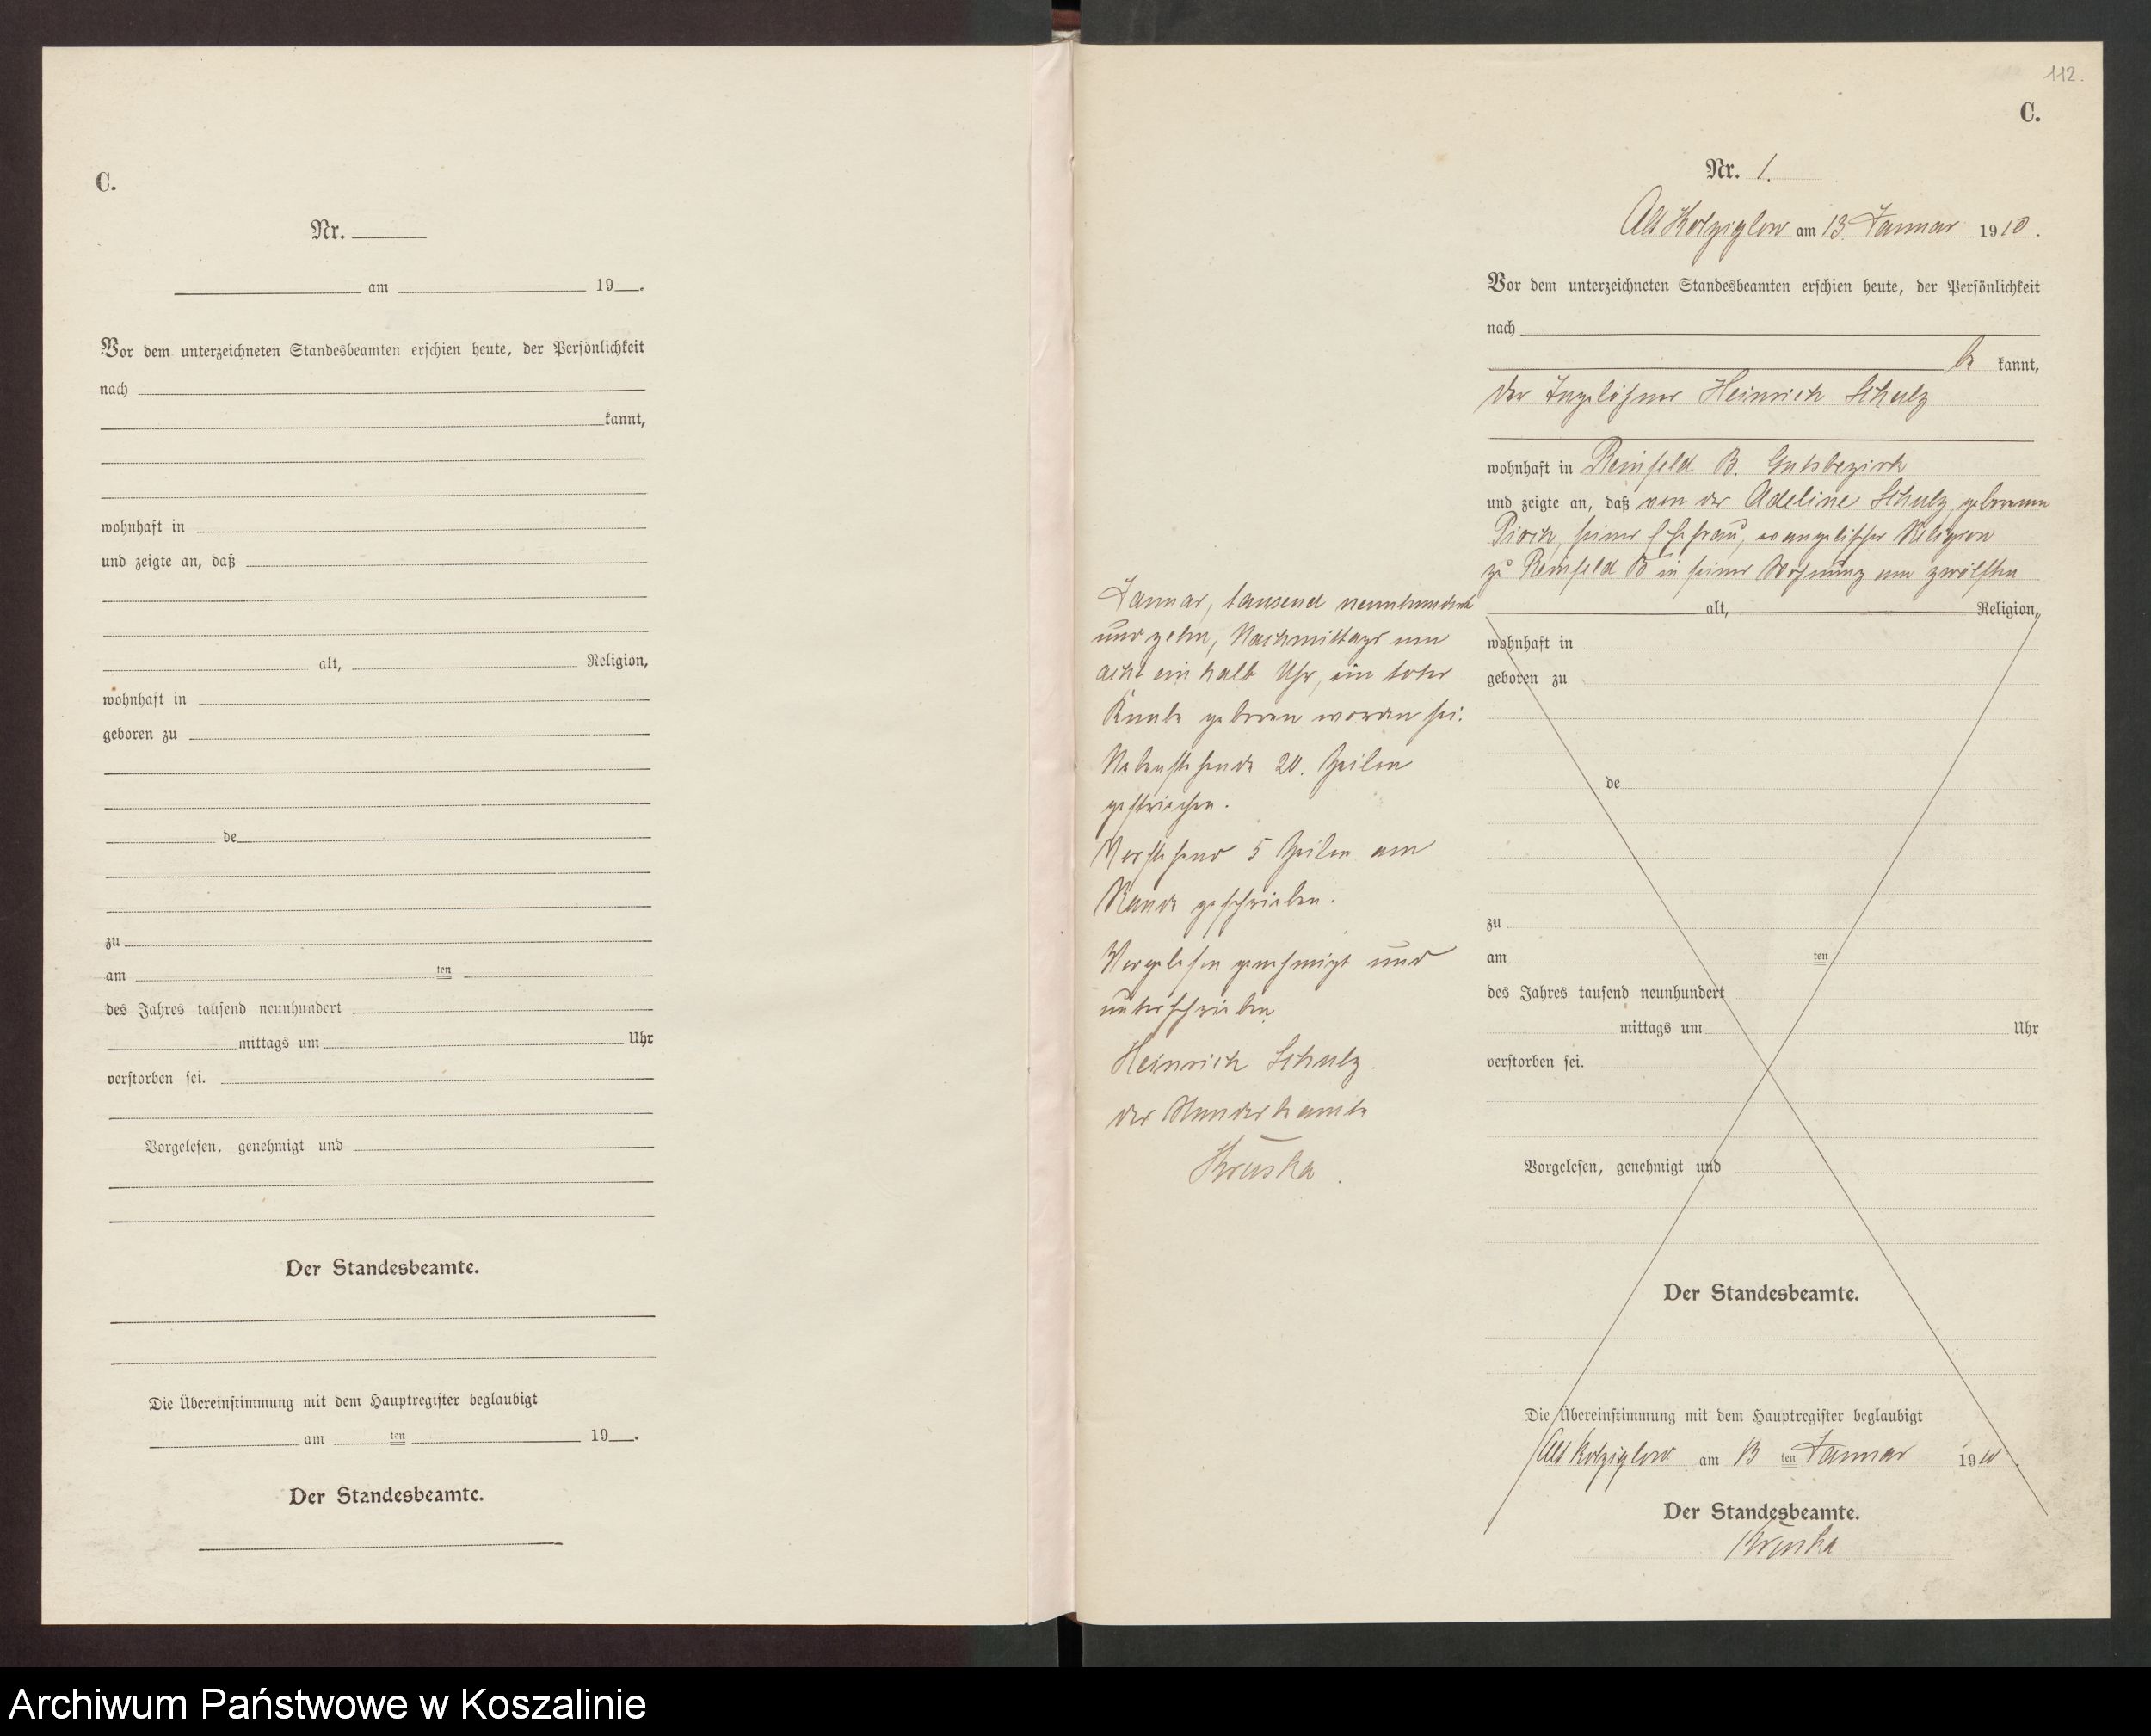 C.
Nr.
am 19 .
Vor dem unterzeichneten Standesbeamten erschien heute, der Persönlichkeit
nach
kannt,
wohnhaft in
und zeigte an, daß
alt, Religion,
wohnhaft in
geboren zu
de
zu
am ten
des Jahres tausend neunhundert
mittags um Uhr
verstorben sei.
Vorgelesen, genehmigt und
Der Standesbeamte.
Die Übereinstimmung mit dem Hauptregister beglaubigt
am ten 19 .
Der Standesbeamte.
112.
C.
Nr. 1.
Alt Kolziglow am 13. Januar 1910.
Vor dem unterzeichneten Standesbeamten erschien heute, der Persönlichkeit
nach
be kannt,
der Tagelöhner Heinrich Schulz
wohnhaft in Reinfeld B. Gutsbezirk
und zeigte an, daß von der Adeline Schulz geborenen
Pioch, seiner Ehefrau, evangelischer Religion
zu Reinfeld B in seiner Wohnung am zwölften
alt, Religion,
Januar, tausend neunhundert
und zehn, Nachmittags um
acht ein halb Uhr, ein toter
Knabe geboren worden sei.
Nebenstehende 20. Zeilen
gestrichen.
Vorstehend 5 Zeilen am
Rande geschrieben.
Vorgelesen genehmigt und
unterschrieben
Heinrich Schulz.
der Standesbeamte
Kruska.
wohnhaft in
geboren zu
de
zu
am ten
des Jahres tausend neunhundert
mittags um Uhr
verstorben sei.
Vorgelesen, genehmigt und
Der Standesbeamte.
Die Übereinstimmung mit dem Hauptregister beglaubigt
Alt Kolziglow am 13 ten Januar 1910.
Der Standesbeamte.
Kruska
Archiwum Państwowe w Koszalinie